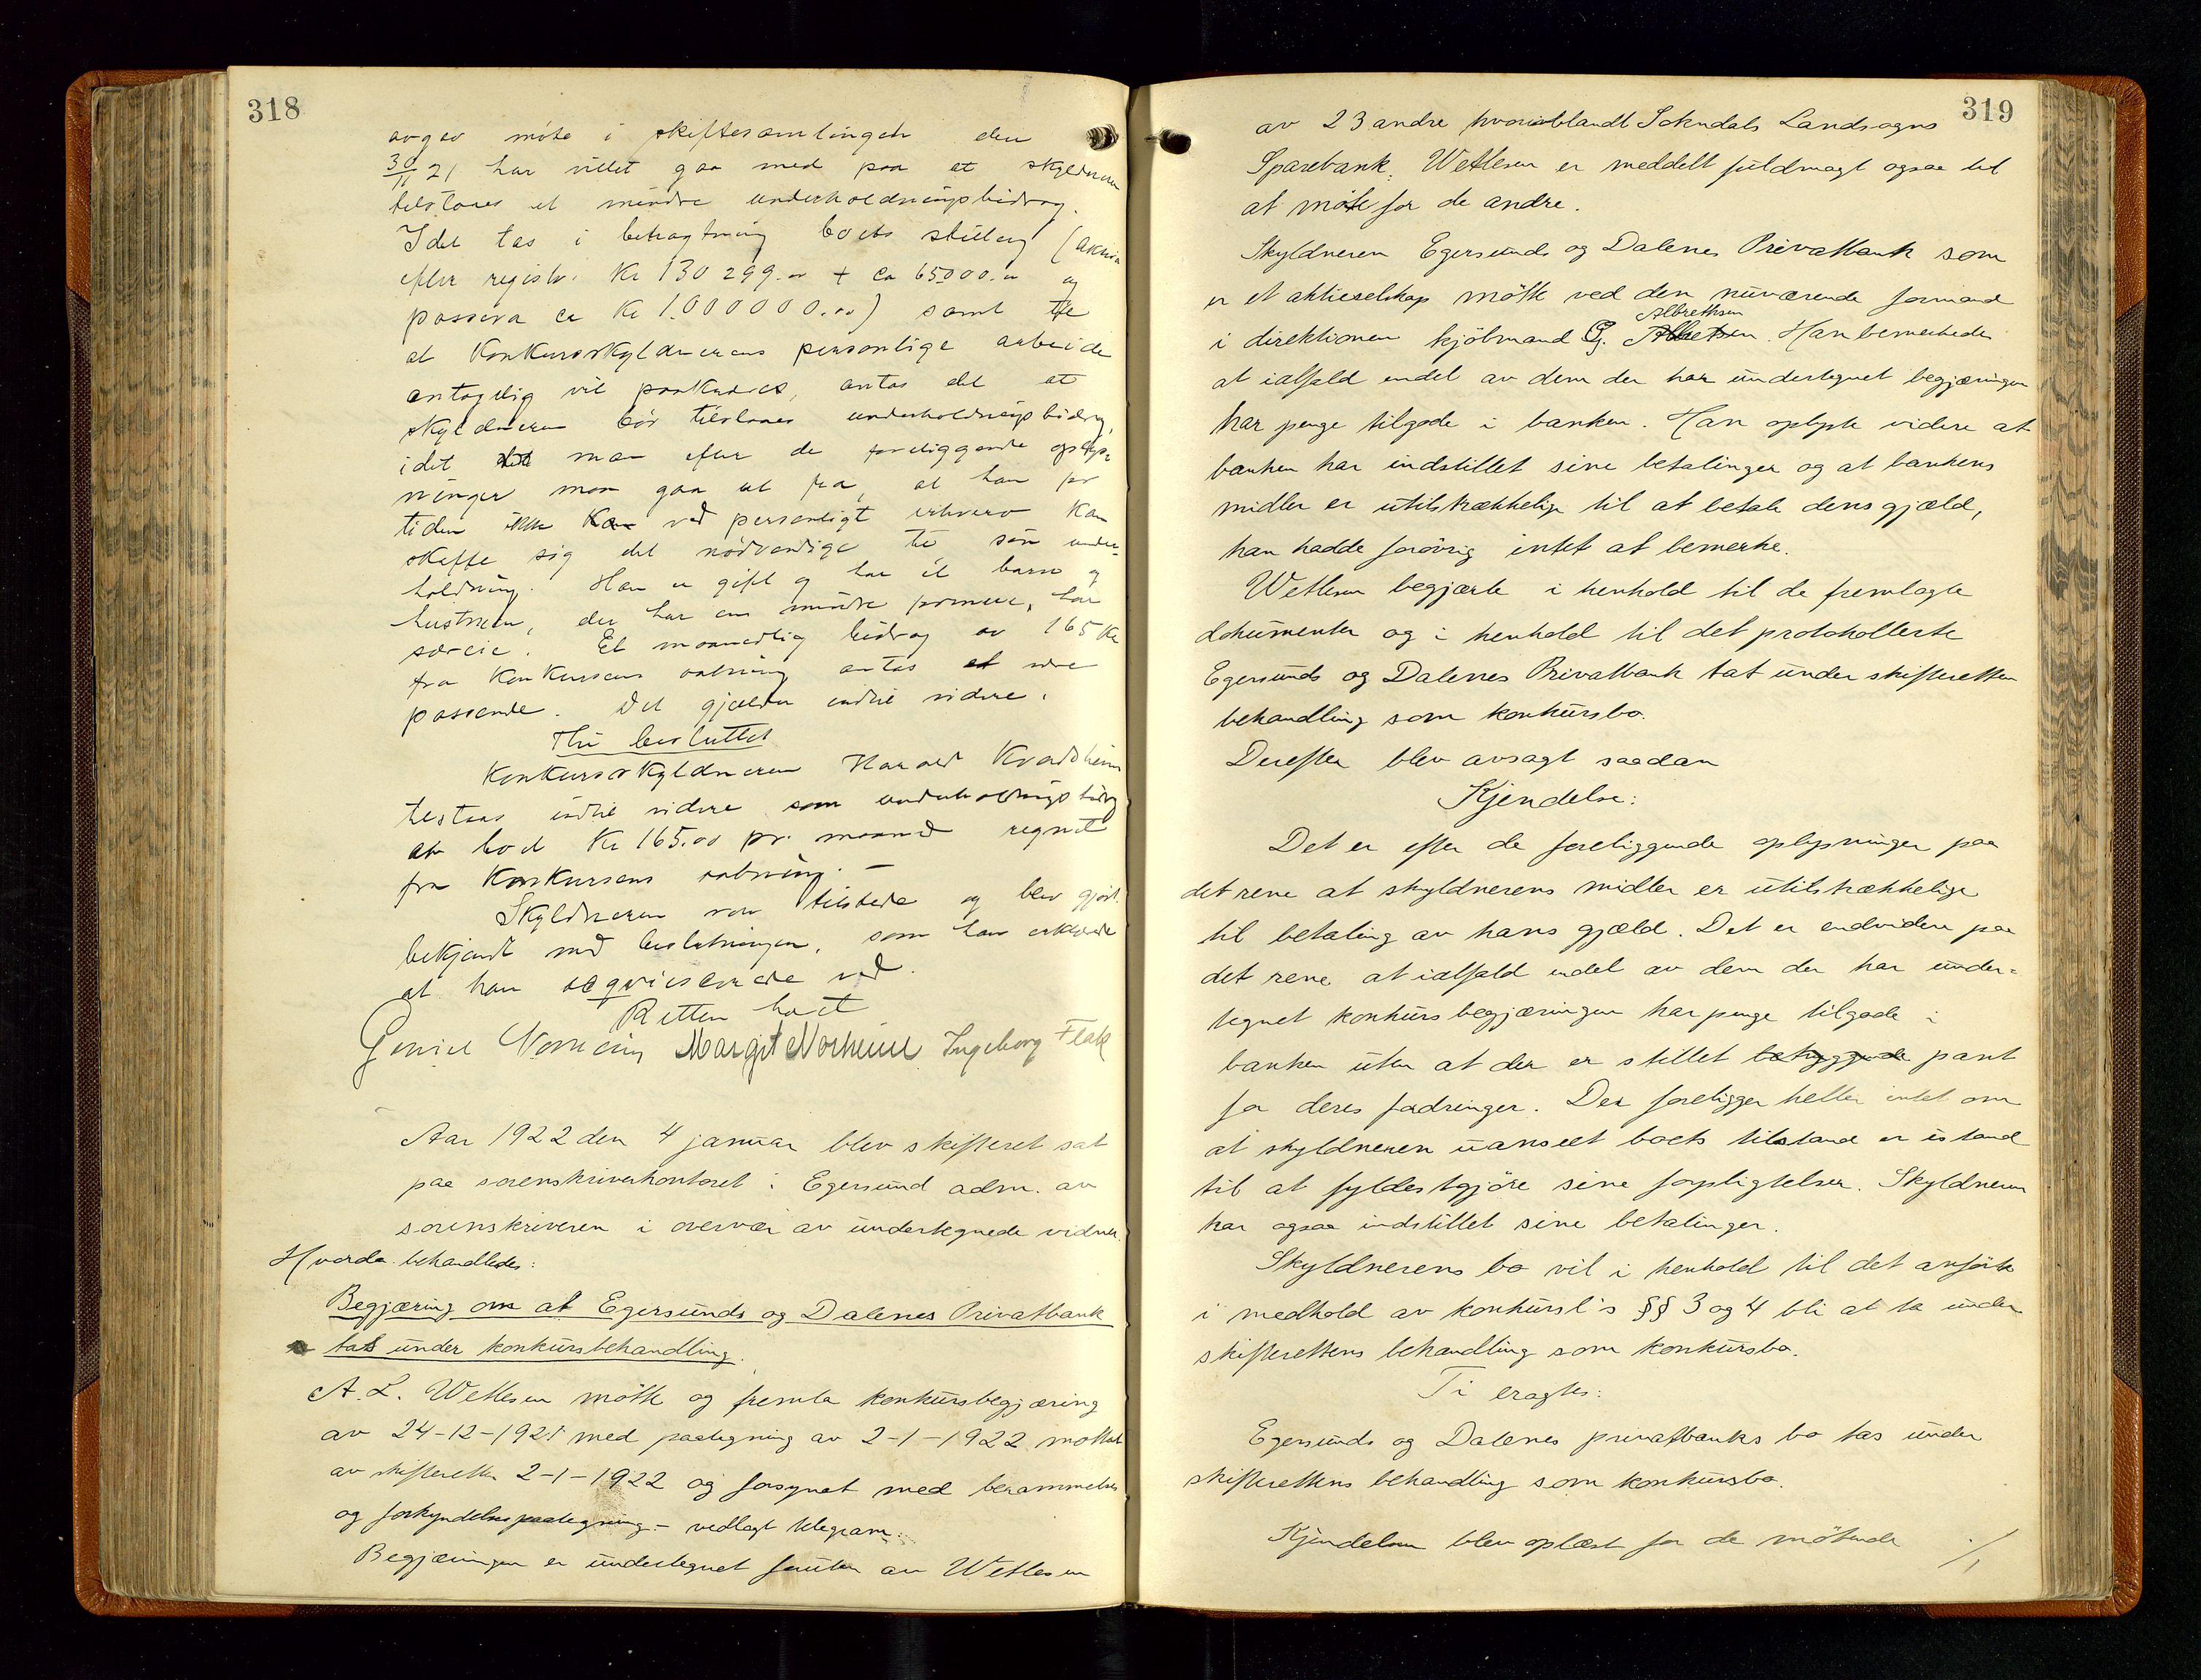 318
avgav møte i skiftesamlingen den
30/11 21 har villet gaa med paa at skyldneren
tilstaaes et mindre underholdningsbidrag.
Idet tas i betragtning boets stilling (aktiva
efter registr. Kr 130 299.00 + ca 65000.00 og
passiva ca Kr 1.000 000.00) samt
at Konkursskyldnerens personlige arbeide
antagelig vil paakræves, antas det at
skyldneren bør tilstaaes underholdningsbidrag,
idet man efter de foreliggende oplys-
ninger maa gaa ut fra, at han for
tiden ikke ved personligt erhverv kan
skaffe sig det nødvendige til sin under-
holdning. Han er gift og har et barn og
hustruen, der har en mindre formue, har
særeie. Et maanedlig bidrag av 165 Kr
fra Konkursens aabning antas at være
passende. Det gjælder indtil videre.
Thi besluttes
Konkursskyldneren Harald Kvadsheim
tilstaaes indtil videre som underholdningsbidrag
av boet Kr 165.00 pr. maaned regnet
fra Konkursens aabning. –
Skyldneren var tilstede og blev gjort
bekjendt med beslutningen, som han erklærte
at han acqviescerede ved.
Retten hævet
Margit Norheim Ingeborg Flak
Aar 1922 den 4 januar blev skifteret sat
paa sorenskriverkontoret i Egersund adm. av
sorenskriveren i overvær av undertegnede vidner.
Hvorda behandledes:
Begjæring om at Egersunds og Dalenes Privatbank
tas under konkursbehandling.
A. L. Wetlesen møtte og fremla konkursbegjæring
av 24-12-1921 med paategning av 2-1-1922 mottat
av skifteretten 2-1-1922 og forsynet med berammelses
og forkyndelsespaategning – vedlagt telegram.
Begjæringen er undertegnet foruten av Wetlesen
319
av 23 andre hvoriblandt Sokndals Landsogns
Sparebank. Wetlesen er meddelt fuldmagt ogsaa til
at møte for de andre.
Skyldneren Egersunds og Dalenes Privatbank som
er et aktieselskap møtte ved den nuværende formand
Albrethsen
i direktionen kjøbmand G. Albretsen. Han bemerkede
at ialfald endel av dem der har undertegnet begjæringen
har penge tilgode i banken. Han oplyste videre at
banken har indstillet sine betalinger og at bankens
midler er utilstrækkelige til at betale dens gjæld,
han hadde forøvrig intet at bemerke.
Wetlesen begjærte i henhold til de fremlagte
dokumenter og i henhold til det protokollerte
Egersunds og Dalenes Privatbank tat under skifterettens
behandling som konkursbo.
Derefter blev avsagt saadan
Kjendelse:
Det er efter de foreliggende oplysninger paa
det rene at skyldnerens midler er utilstrækkelige
til betaling av hans gjæld. Det er endvidere paa
det rene at ialfald endel av dem der har under-
tegnet konkursbegjæringen har penge tilgode i
banken uten at der er stillet betryggende pant
for deres fordringer. Der foreligger heller intet om
at skyldneren uanseet boets tilstand er istand
til at fyldestgjøre sine forpligtelser. Skyldneren
har ogsaa indstillet sine betalinger.
Skyldnerens bo vil i henhold til det anførte
i medhold av konkursl's §§ 3 og 4 bli at ta under
skifterettens behandling som konkursbo.
Ti eragtes:
Egersunds og Dalenes privatbanks bo tas under
skifterettens behandling som konkursbo.
Kjendelsen blev oplæst for de møtende